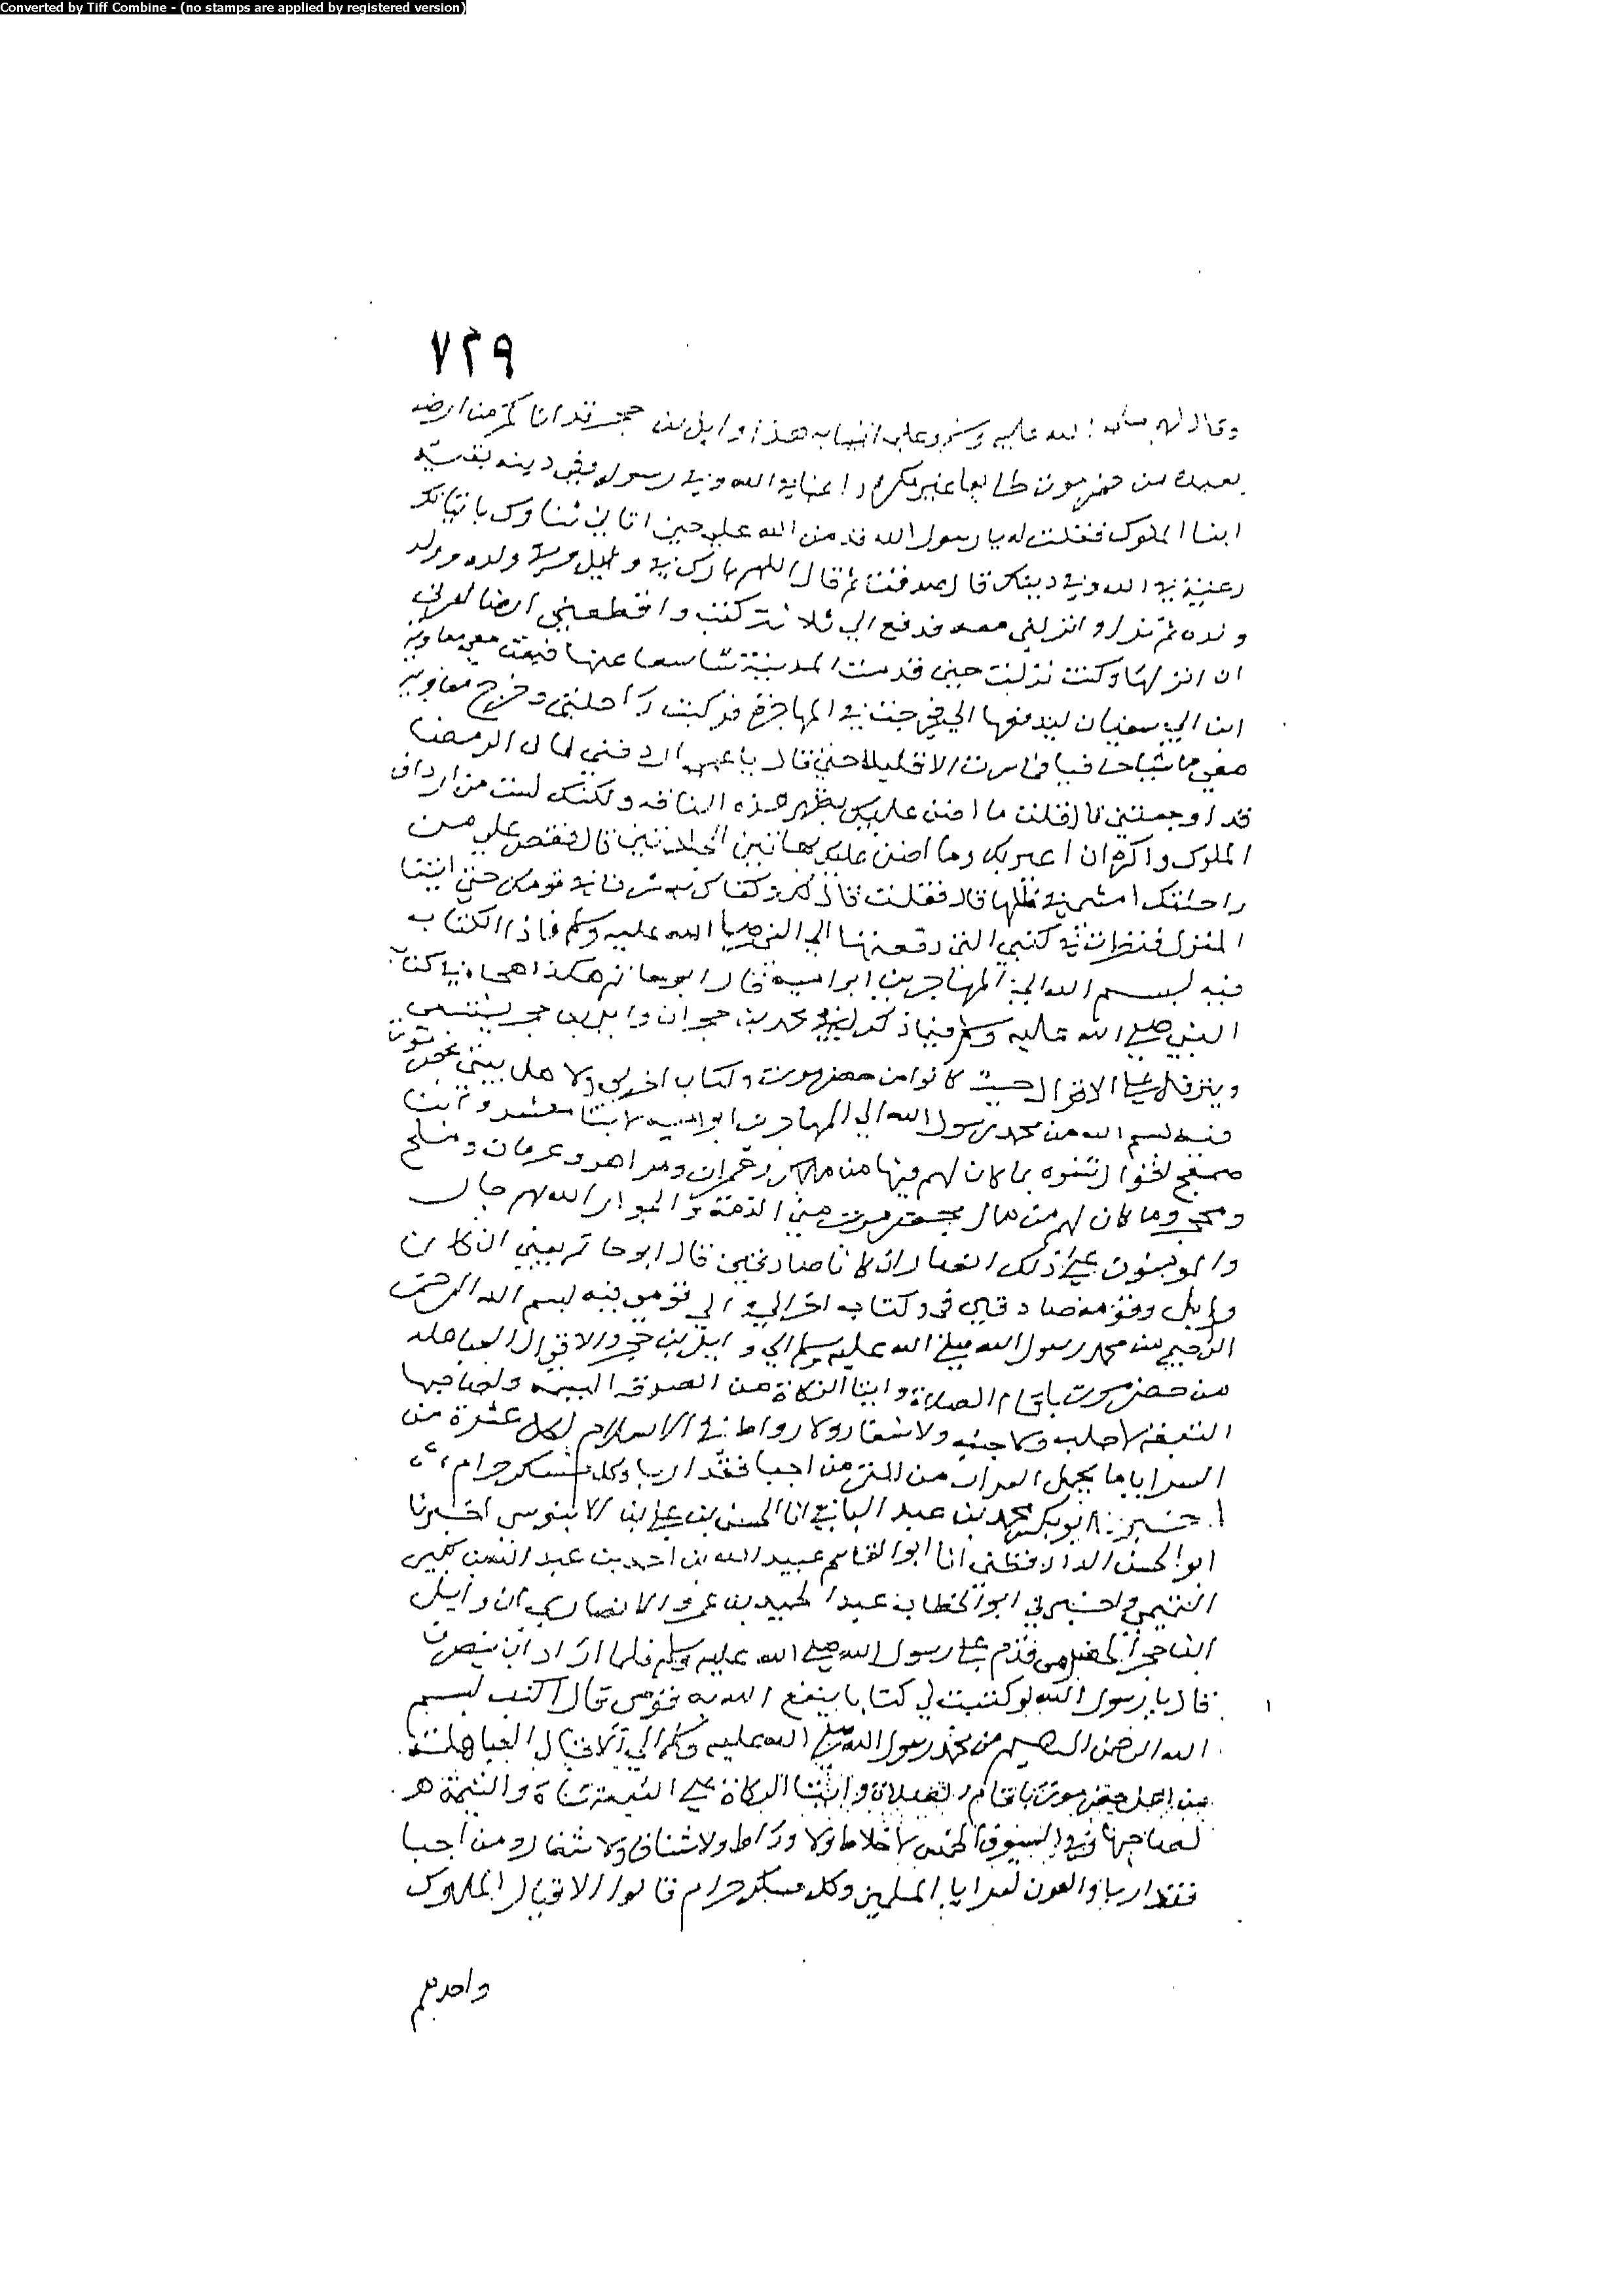 Converted by Tiff Combine - (no stamps are applied by registered version)
٧٢٩
وقال لهم صلى الله عليه وسلم وعلى انبيايه هذا وايل بن حجر قد اتاكم من ارض
بعيدة من حضرموت طايعا غير مكره راغبا في الله وفي رسوله وفي دينه بقية
ابنا الملوك فقلت له يا رسول الله قد من الله علي حين اتاني ثناوك باتيانك
رغبني في الله وفي دينك قال صدقت ثم قال اللهم بارك في وايل وفي ولده وولد
ولده ثم نزل وانزلني معه فدفع الي ثلاثة كتب واقطعني ارضا امرني
ان انزلها وكنت نزلت حين قدمت المدينة شاسعا عنها فبعث معي معاوية
ابن ابي سفيان ليدفعها الي فخرجت في المهاجرة فركبت راحلتي وخرج معاوية
معي ماشيا حافيا فما سرت الا قليلا حتى قال يا عم اردفني فان الرمضا
قد اوجعتني قال فقلت ما اضن عليك بظهر هذه الناقة ولكنك لست من ارداف
الملوك واكره ان اعير بك وما اضن عليك بهاتين الجلدتين قال فقصر علي من
راحلتك امشي في ظلها قال فقلت فاذكر وكفاك به شرفا في قومك حتى اتينا
المنزل فنظرت في كتبي التي دفعتها الي النبي صلى الله عليه وسلم فاذا الكتاب
فيه بسم الله الى المهاجر بن ابو امية قال ابو حاتم هكذا هجاوه في كتاب
النبي صلى الله عليه وسلم فيما ذكر لي محمد بن حجر ان وايل بن حجر يستسعى
ويترفل على الاقوال حيث كانوا من حضرموت وكتاب اخر لي ولاهل بيتي بحضرموت
فيه بسم الله من محمد رسول الله الي المهاجر بن ابو امية لابنا معشر وابنا
ضمعج اقوال شنوه بما كان لهم فيها من ملك وعمران ومزاهر وعرمان وملح
ومحجر وما كان لهم من مال بحضرموت مني الذمة والجوار الله لهم جار
والمومنون على ذلك انصار ان كانا صادقين قال ابو حاتم يعني ان كان
وايل وقومه صادقين وكتاب اخر الي والي قومي فيه بسم الله الرحمن
الرحيم من محمد رسول الله صلى الله عليه وسلم الي وايل بن حجر والاقوال العباهله
من حضرموت باقام الصلاة وايتا الزكاة من الصرمة التيمه ولصاحبها
التبعة لا جلب ولا جنب ولا شغار ولا وراط في الاسلام لكل عشرة من
السرايا ما يحمل القراب من التمر من اجبا فقد اربا وكل مسكر حرام
اخبرنا ابو بكر محمد بن عبد الباقي انا الحسن بن علي بن الابنوسي اخبرنا
ابو الحسن الدارقطني انا ابو القاسم عبيد الله بن احمد بن عبد الله بن بكير
التيمي واخبرني ابو الخطاب عبد الحميد بن عمرو الانصاري ان وايل
ابن حجر الحضرمي قدم على رسول الله صلى الله عليه وسلم فلما اراد ان ينصرف
قال يا رسول الله لو كتبت لي كتابا ينفع الله به قومي قال اكتب بسم
الله الرحمن الرحيم من محمد رسول الله صلى الله عليه وسلم الي الاقيال العباهلة
من اهل حضرموت باقام الصلاة وايتا الزكاة على التيعة شاة والتيمة هو
لصاحبها وفي السيوف الخمس لا خلاط ولا وراط ولا شناق ولا شغار ومن اجبا
فقد اربا والعون لسرايا المسلمين وكل مسكر حرام قالوا الاقيال الملوك
واحدهم